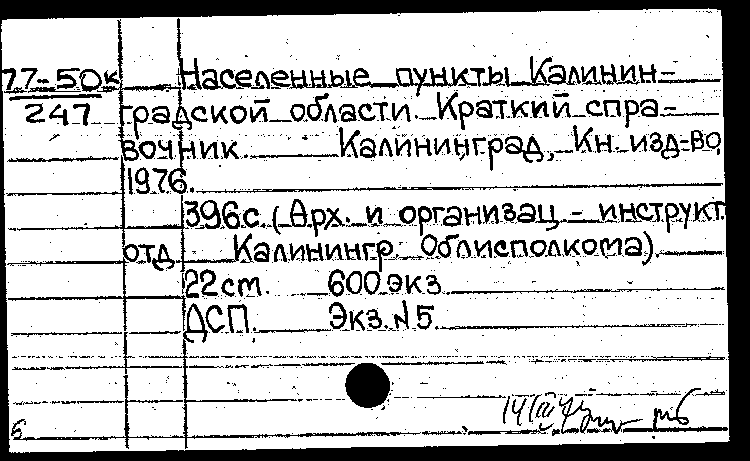 77-50к Населенные пункты Калинин-
247 градской области. Краткий спра-
вочник. Калининград, Кн. изд-во,
1976.
396с. (Арх. и организац - инструкт.
отд. Калинингр. Облисполкома).
22см. 600 экз
ДСП. Экз. N5.
б